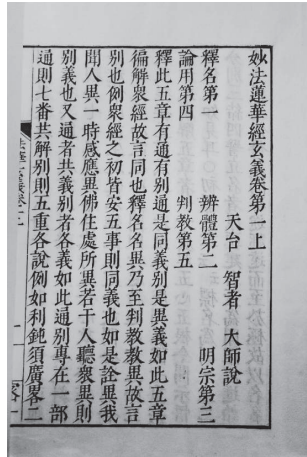 妙法蓮華經玄義卷第一上
天台 智者 大師說
釋名第一 辨體第二 明宗第三
論用第四 判教第五
釋此五章有通有別通是同義別是異義如此五章
徧解衆經故言同也釋名名異乃至判教教異故言
別也例衆經之初皆安五事則同義也如是詮異我
聞人異一時感應異佛住處所異若干人聽衆異則
別義也又通者共義別者各義如此通別專在一部
通則七番共解別則五重各說例如利鈍須廣畧二